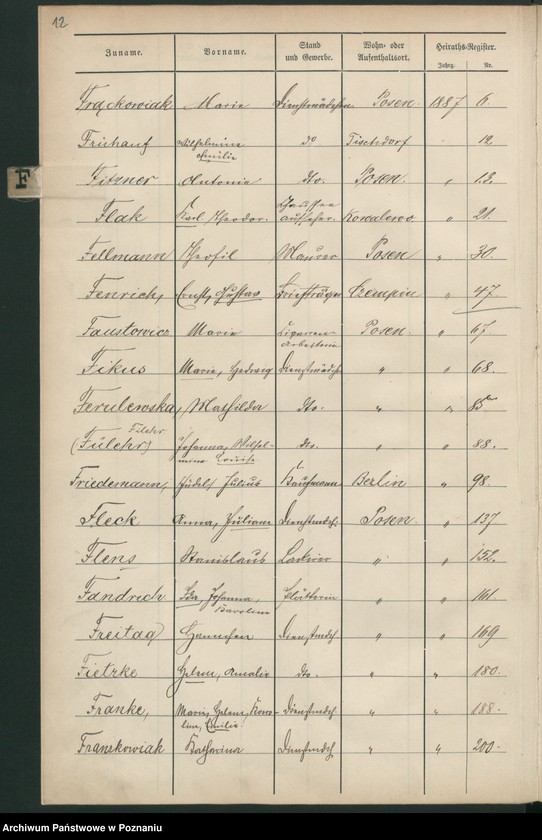 12
Zuname. Vorname. Stand und Gewerbe. Wohn- oder Aufenthaltsort. Heiraths-Register.
Jahrg. Nr.
F
Frąckowiak Marie Dienstmädchen Posen. 1887 6.
Frühauf Wilhelmine Emilie do Tischdorf " 12.
Fitzner Antonie dto. Posen. " 13.
Flak Karl Theodor. Chaussee aufseher. Kowalewo " 21.
Fellmann Theofil Maurer Posen " 30.
Fenrich, Ernst, Gustav Briefträger Czempin " 47
Faustowicz Marie Cigarren Arbeiterin Posen. " 67.
Fikus Marie, Hedwig Dienstmädch " " 68.
Ferulewska, Mathilda dto. " " 85
(Fülehr) Fülehr Johanna, Wilhel-mine Louise dto. " " 88.
Friedemann, Jüdel, Julius Kaufmann Berlin " 98.
Fleck Anna, Juliane Dienstmdch. Posen. " 137
Flens Stanislaus Lackirer " " 152.
Fandrich Ida, Johanna, Karoline Plätterin " " 161.
Freitag Hannchen Dienstmdch " " 169
Fietzke Helene, Amalie dto. " " 180.
Franke, Marie, Helene, Karo-line, Emilie Dienstmdch " " 188.
Franzkowiak Katharina Dienstmdch " " 200.
Archiwum Państwowe w Poznaniu